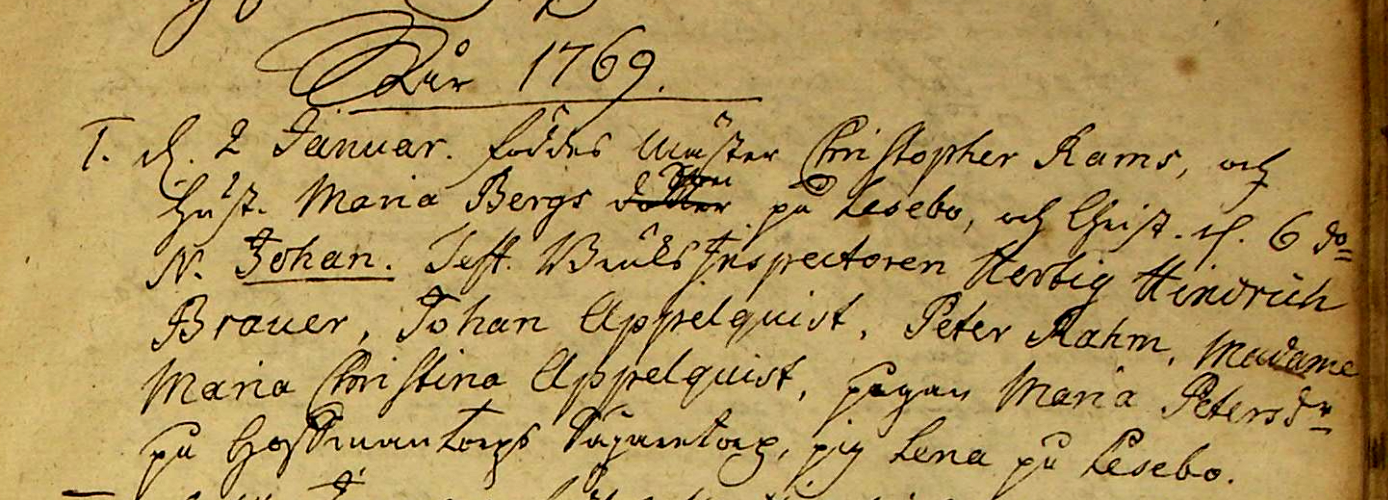 Åhr 1769.
1. d. 2 Januar. föddes Mäster Christopher Rams, och
Hust. Maria Bergs dotter Son på Lesebo, och Christ. d. 6 do
N. Johan. Test. Bruks Inspectoren Herbig Hindrich
Brauer, Johan Appelquist, Peter Rahm, Madame
Maria Christina Appelquist, pigan Maria Petersdr
på Hoffmantorps pig Lena på Lesebo.